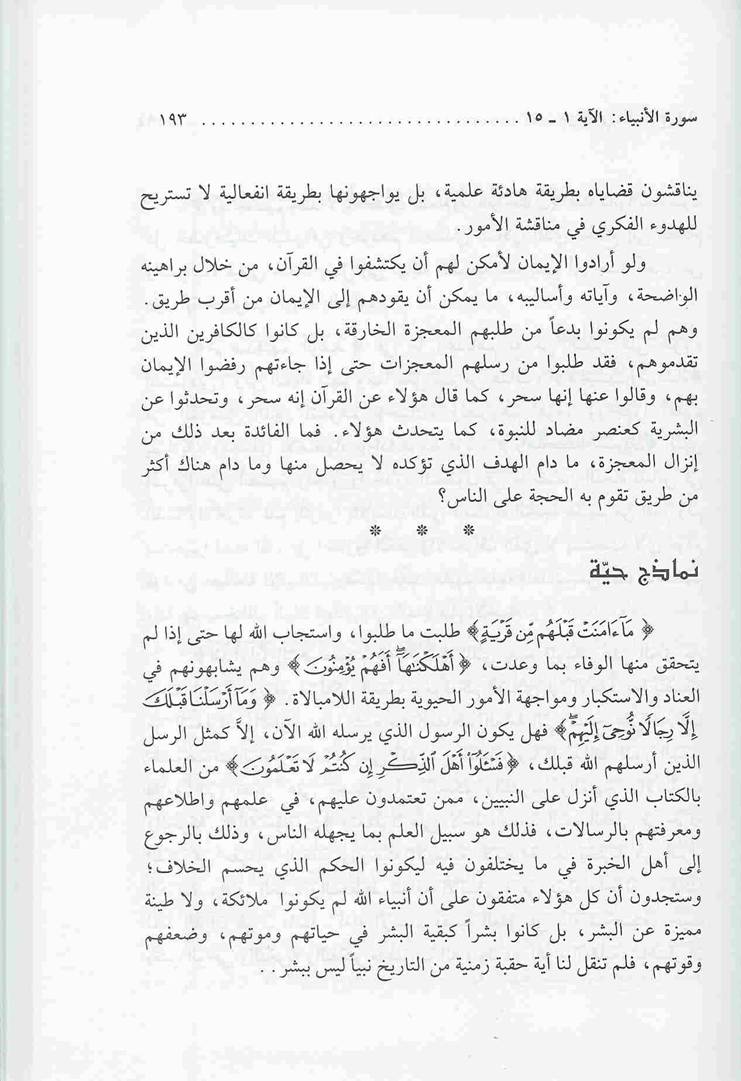 سورة الأنبياء: الآية ١ ـ ١٥ ................................. ١٩٣
يناقشون قضاياه بطريقة هادئة علمية، بل يواجهونها بطريقة انفعالية لا تستريح
للهدوء الفكري في مناقشة الأمور.
ولو أرادوا الإيمان لأمكن لهم أن يكتشفوا في القرآن، من خلال براهينه
الواضحة، وآياته وأساليبه، ما يمكن أن يقودهم إلى الإيمان من أقرب طريق.
وهم لم يكونوا بدعاً من طلبهم المعجزة الخارقة، بل كانوا كالكافرين الذين
تقدموهم، فقد طلبوا من رسلهم المعجزات حتى إذا جاءتهم رفضوا الإيمان
بهم، وقالوا عنها إنها سحر، كما قال هؤلاء عن القرآن إنه سحر، وتحدثوا عن
البشرية كعنصر مضاد للنبوة، كما يتحدث هؤلاء. فما الفائدة بعد ذلك من
إنزال المعجزة، ما دام الهدف الذي تؤكده لا يحصل منها وما دام هناك أكثر
من طريق تقوم به الحجة على الناس؟
* * *
نماذج حيّة
﴿ مَآ ءَامَنَتْ قَبْلَهُم مِّن قَرْيَةٍ﴾ طلبت ما طلبوا، واستجاب الله لها حتى إذا لم
يتحقق منها الوفاء بما وعدت، ﴿أَهْلَكْنَٰهَآ أَفَهُمْ يُؤْمِنُونَ﴾ وهم يشابهونهم في
العناد والاستكبار ومواجهة الأمور الحيوية بطريقة اللامبالاة. ﴿ وَمَآ أَرْسَلْنَا قَبْلَكَ
إِلَّا رِجَالًا نُّوحِىٓ إِلَيْهِمْ﴾ فهل يكون الرسول الذي يرسله الله الآن، إلاَّ كمثل الرسل
الذين أرسلهم الله قبلك، ﴿فَسْـَٔلُوٓا۟ أَهْلَ ٱلذِّكْرِ إِن كُنتُمْ لَا تَعْلَمُونَ﴾ من العلماء
بالكتاب الذي أنزل على النبيين، ممن تعتمدون عليهم، في علمهم واطلاعهم
ومعرفتهم بالرسالات، فذلك هو سبيل العلم بما يجهله الناس، وذلك بالرجوع
إلى أهل الخبرة في ما يختلفون فيه ليكونوا الحكم الذي يحسم الخلاف؛
وستجدون أن كل هؤلاء متفقون على أن أنبياء الله لم يكونوا ملائكة، ولا طينة
مميزة عن البشر، بل كانوا بشراً كبقية البشر في حياتهم وموتهم، وضعفهم
وقوتهم، فلم تنقل لنا أية حقبة زمنية من التاريخ نبياً ليس ببشر..